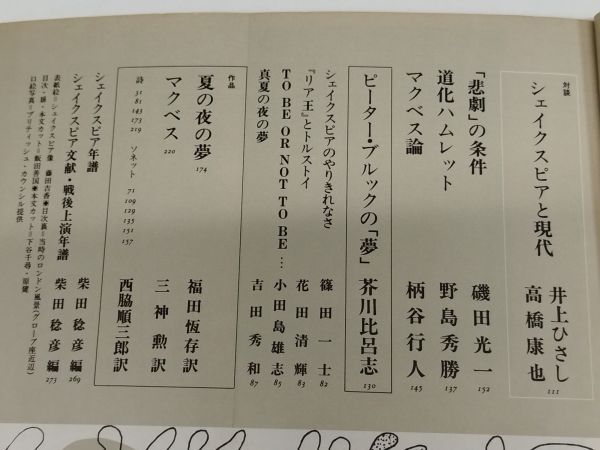 対談
シェイクスピアと現代
井上ひさし
高橋康也 111
「悲劇」の条件 磯田光一 152
道化ハムレット 野島秀勝 137
マクベス論 柄谷行人 145
ピーター・ブルックの「夢」 芥川比呂志 130
シェイクスピアのやりきれなさ 篠田一士 82
『リア王』とトルストイ 花田清輝 83
TO BE OR NOT TO BE… 小田島雄志 85
真夏の夜の夢 吉田秀和 87
作品
夏の夜の夢 174 福田恆存訳
マクベス 220 三神勲訳
詩 31 81 143 173 219 ソネット 71 109 129 135 151 157 西脇順三郎訳
シェイクスピア年譜 柴田稔彦編 269
シェイクスピア文献・戦後上演年譜 柴田稔彦編 273
表紙絵=シェイクスピア像 藤田吉香✽目次裏=当時のロンドン風景(グローブ座近辺)
目次・扉・本文カット=飯田善国✽本文カット=下谷千尋・原健
口絵写真=ブリティッシュ・カウンシル提供